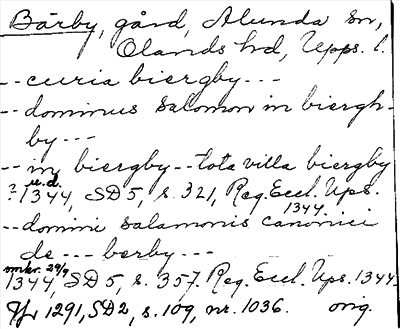 Bärby, gård, Alunda sn,
Olands hd, Upps. l.
-- curia biergby ---
-- dominus Salomon in biergh-
by ---
-- in biergby -- tota villa biergby
? u.d.
1344, SD 5, s. 321, Reg. Eccl. Ups.
1344.
-- domini salamonis canonici
de --- berby ---
omkr. 29/9
1344, SD 5, s. 357. Reg. Eccl. Ups. 1344.
Jfr 1291, SD 2, s. 109, nr. 1036. orig.